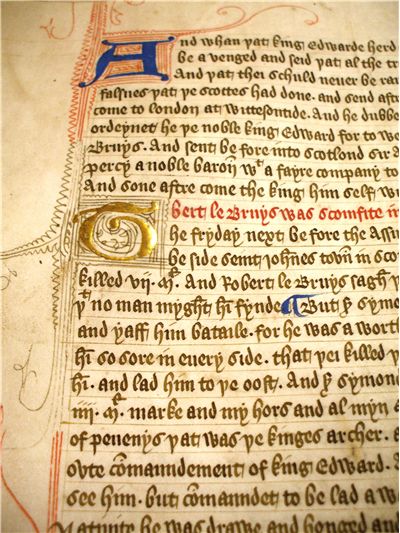 And whan þat king Edwarde herd
be a venged and seid þat al the tr
And þat thei schuld never be ra
falsnes þat þe scottes had done. and send aftr
come to london at wittesontide. And he dubbe
ordeynet he þe noble king Edward for to we
Bruys. And sent be fore into scotlond sir a
percy a noble baroñ wt a fayre company to
And sone aftre come the king him self wi
bert le Bruys was scomfite in
he fryday next be fore the Assu
be side seint johnes tovñ in sco
killed vii. Ml. And Robert le Bruys sagh þ
þt no man myght hī fynde ¶ But þ symo
and yaff him bataile. for he was a worth
hī so sore in euery side. that þei killed þ
hī. and lad him to þe oost. And þ symond
iiii. Ml. marke and my hors and al myn a
of pevenys þat was þe kinges archer. a
ovte cōmaundement of king Edward. A
see him. but cōmaundet to be lad a w
he was drawe and honged and